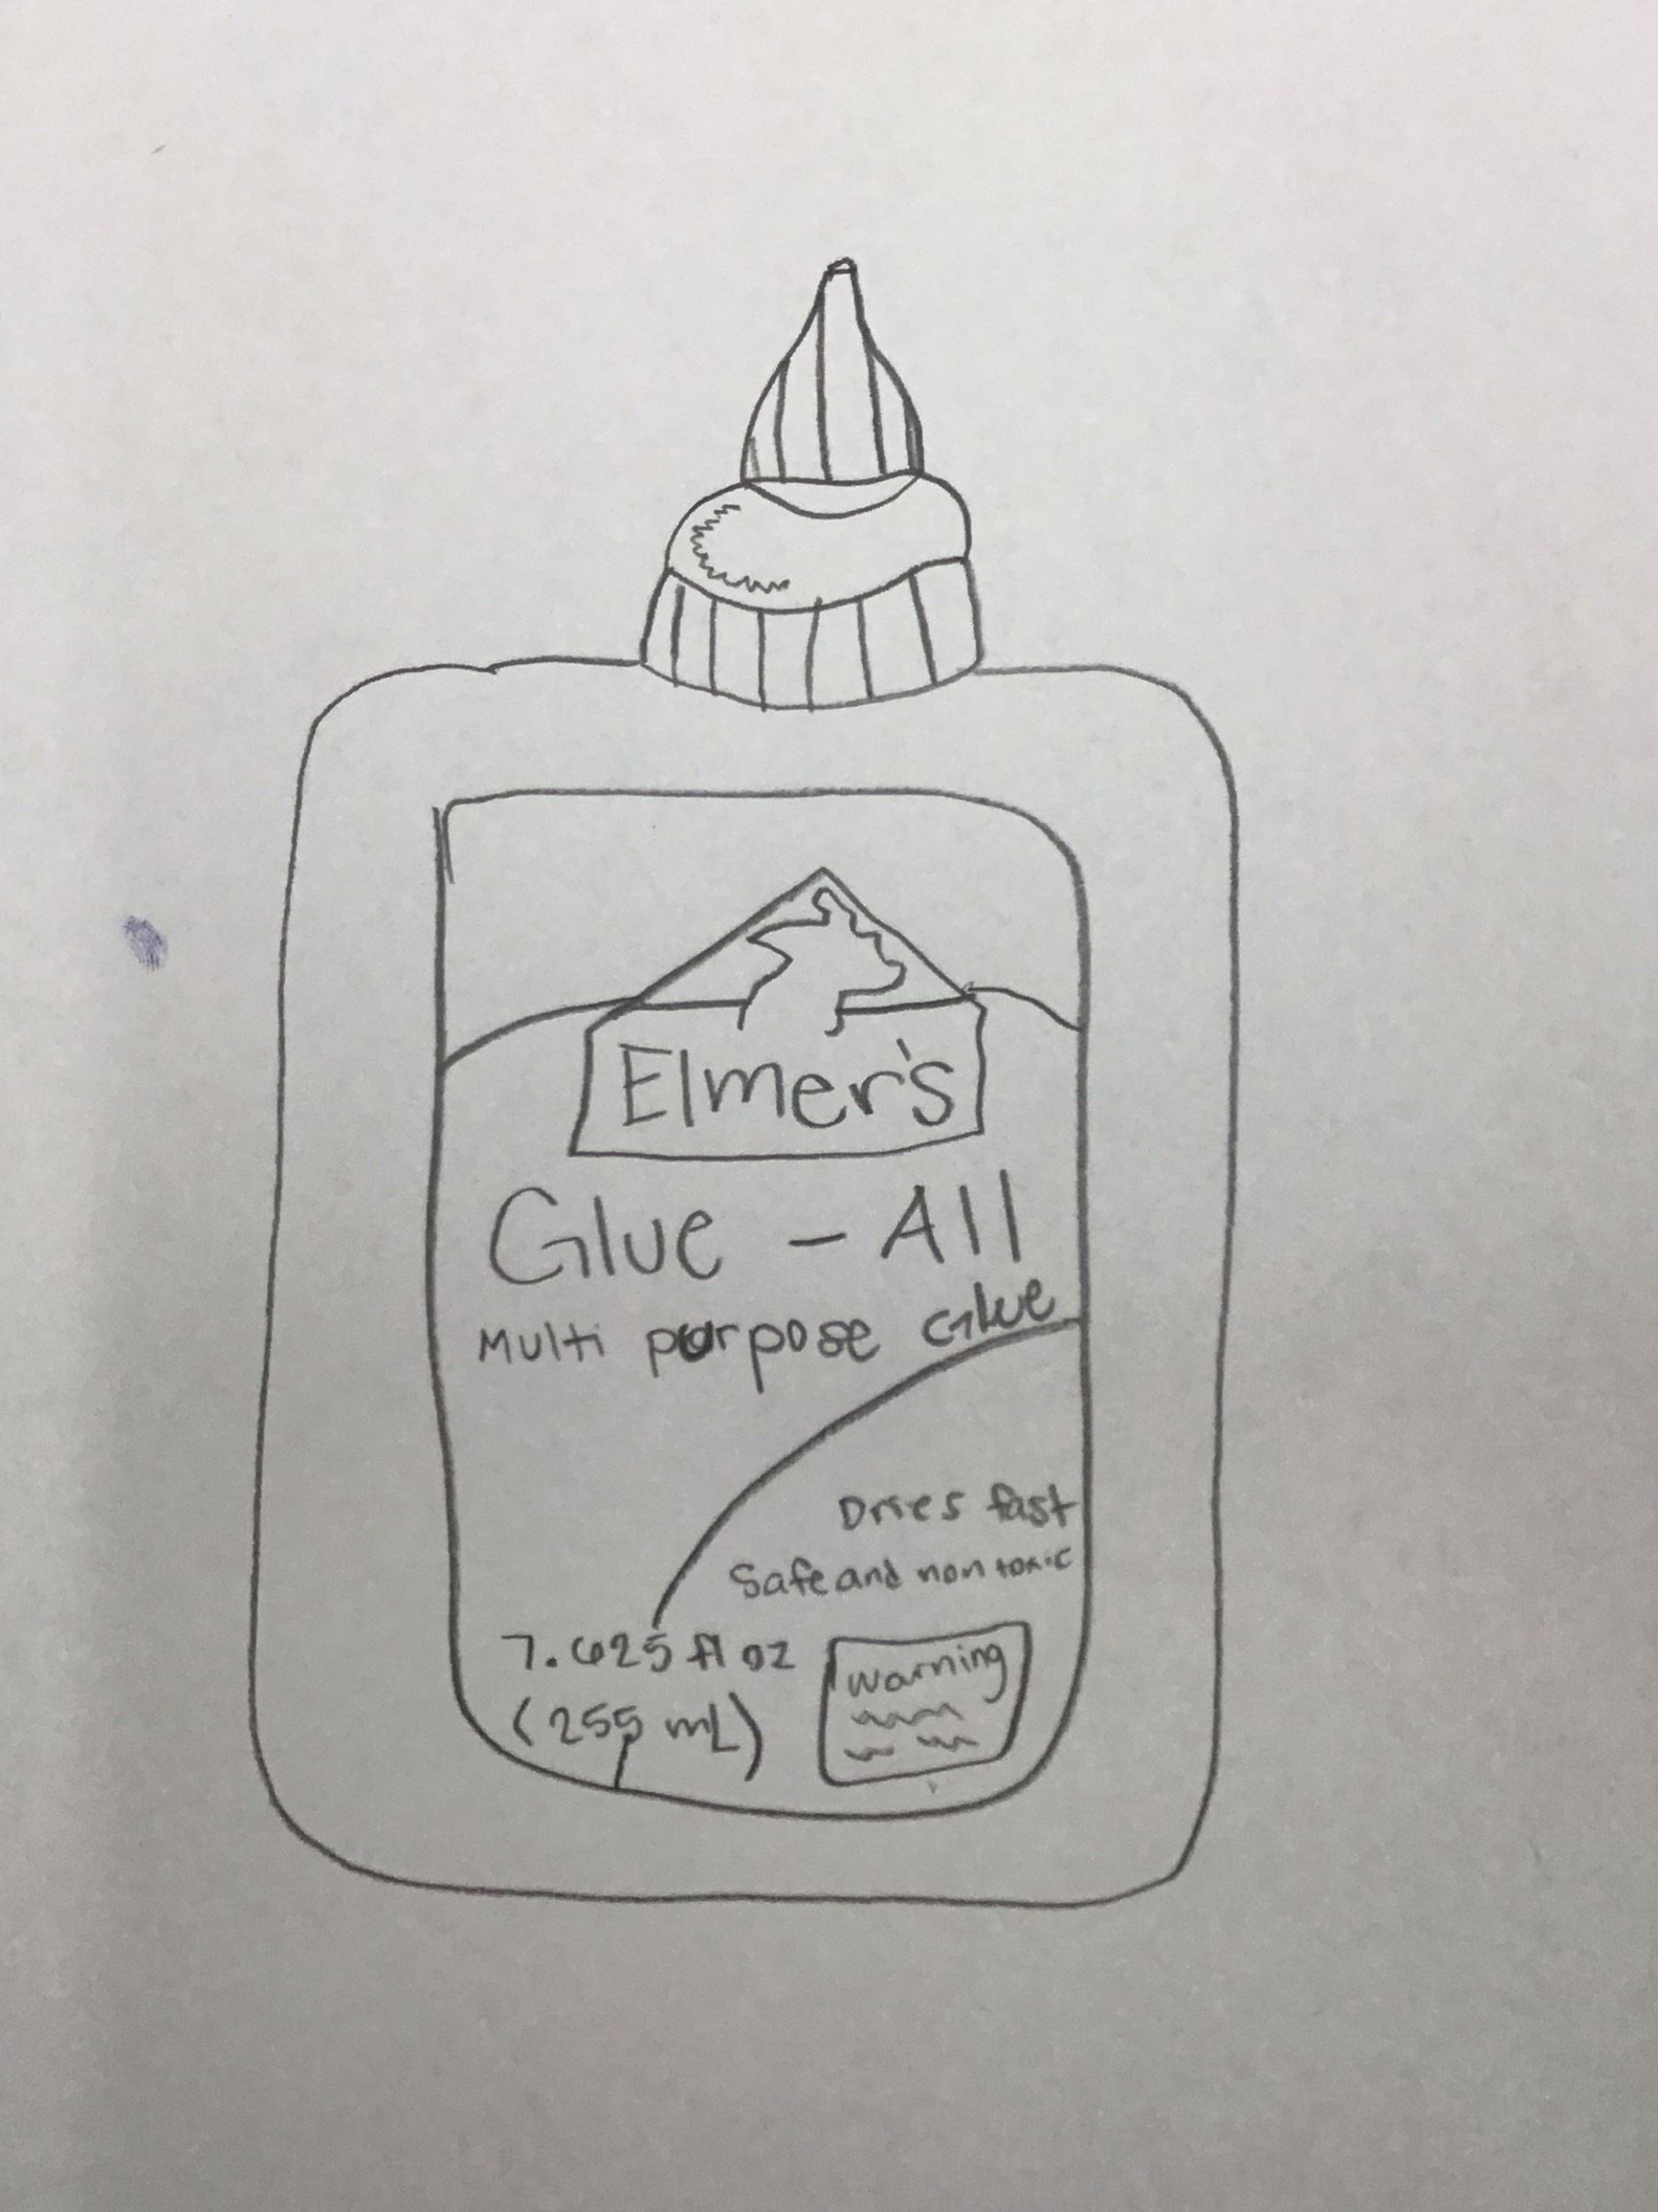 Elmer's
Glue - All
Multi purpose Glue
Dries fast
Safe and non toxic
7.625 fl oz
(255 mL)
Warning